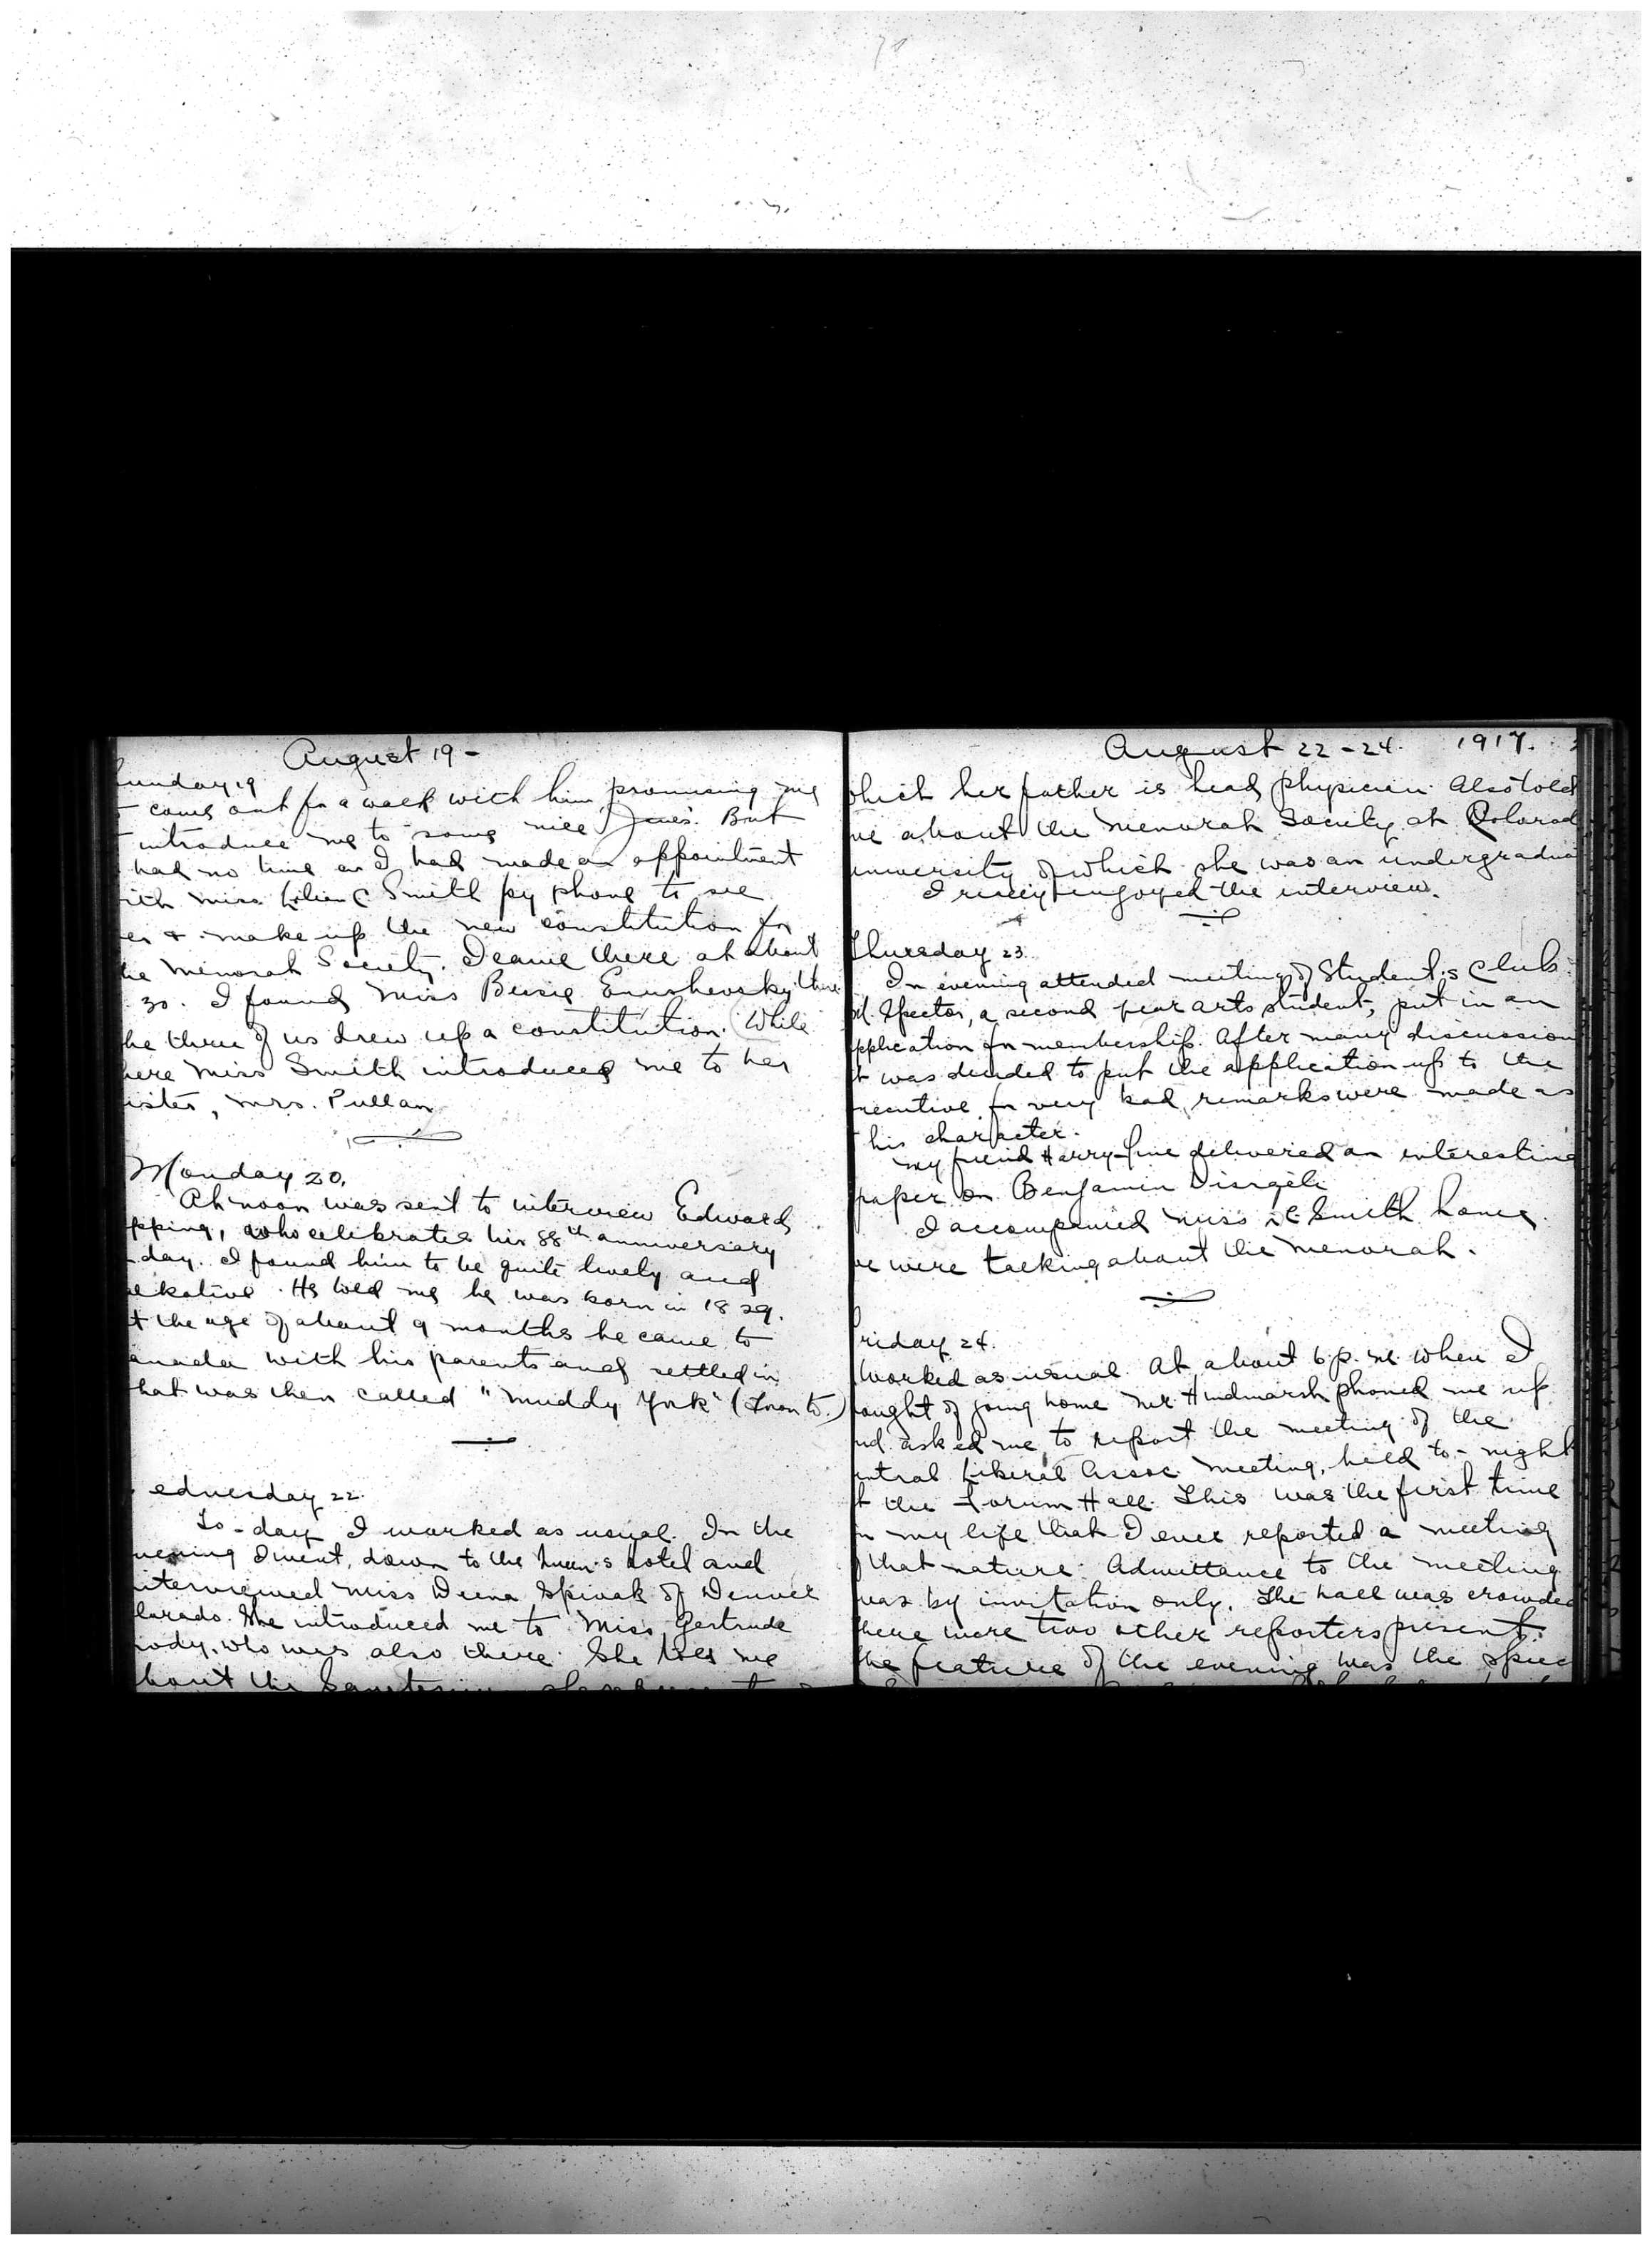 August 19 -
unday 19
come out for a walk with him promising me
introduce me to some nice
But
had no time as I had made an appointment
ith Miss Lilian C Smith by phone to see
er & make up the new constitution for
he Menorah Society. I came there at about
30. I found Miss Bessie Enushevsky there
he three of us drew up a constitution. While
here Miss Smith introduced me to her
ister, Mrs. Pullan
Monday 20.
At noon was sent to interview Edward
pping, who celebrates his 88th anniversary
day. I found him to be quite lively and
lkative. He told me he was born in 1829.
t the age of about 9 months he came to
anada with his parents and settled in
hat was then called "Muddy York" (Toronto.)
ednesday 22.
To-day I worked as usual. In the
vening I went, down to the Queen's hotel and
nterviewed Miss Deena Spivak of Denver
lorado. She introduced me to Miss Gertrude
ody, who was also there. She told me
bout the Sanatorium
August 22 - 24. 1917.
which her father is head physician. Also told
me about the Menorah Society at Colorad
university of which she was an undergradua
I really enjoyed the interview.
Thursday 23.
In evening attended meeting of Student's Club.
M. Spector, a second year arts student, put in an
pplication for membership. After many discussion
it was decided to put the application up to the
xecutive for very bad remarks were made as
his character.
My friend Harry Fine delivered an interesting
paper on Benjamin Disraeli
I accompanied Miss LC Smith home.
we were talking about the Menorah.
riday 24.
Worked as usual. At about 6 p.m. when I
ought of going home Mr. Hindmarsh phoned me up
nd asked me to report the meeting of the
entral Liberal Assoc. meeting, held to-night
t the Forum Hall. This was the first time
in my life that I ever reported a meeting
of that nature. Admittance to the meeting
was by invitation only. The hall was crowded
there were two other reporters present.
the feature of the evening was the speec